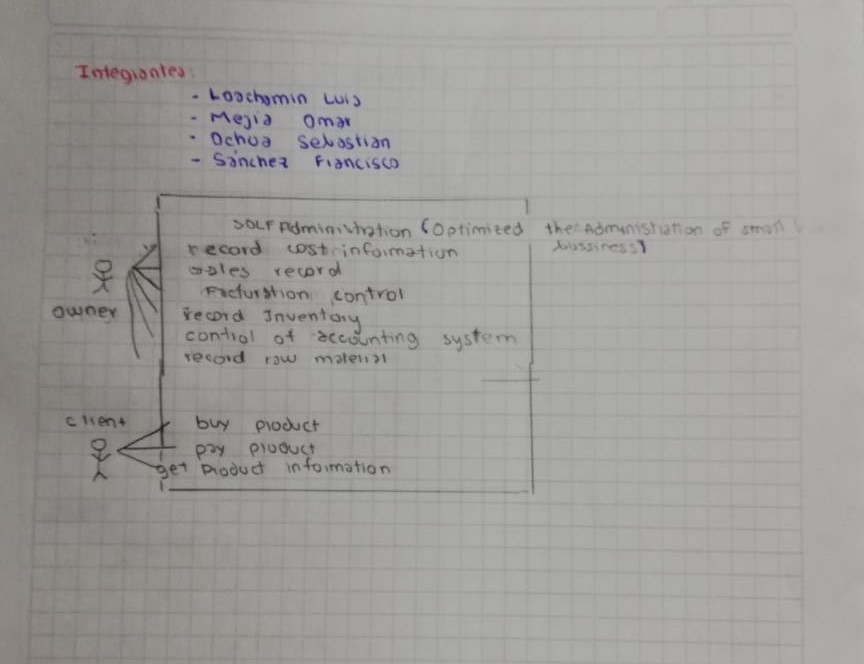 Integrantes:
- Loachamin Luis
- Mejia Omar
- Ochoa Sebastian
- Sánchez Francisco
SOLF Administration (Optimized the Administration of small bussiness)
record cost information
sales record
Facturation control
owner
record Inventory
control of accounting system
record raw material
client
buy product
pay product
get Product information